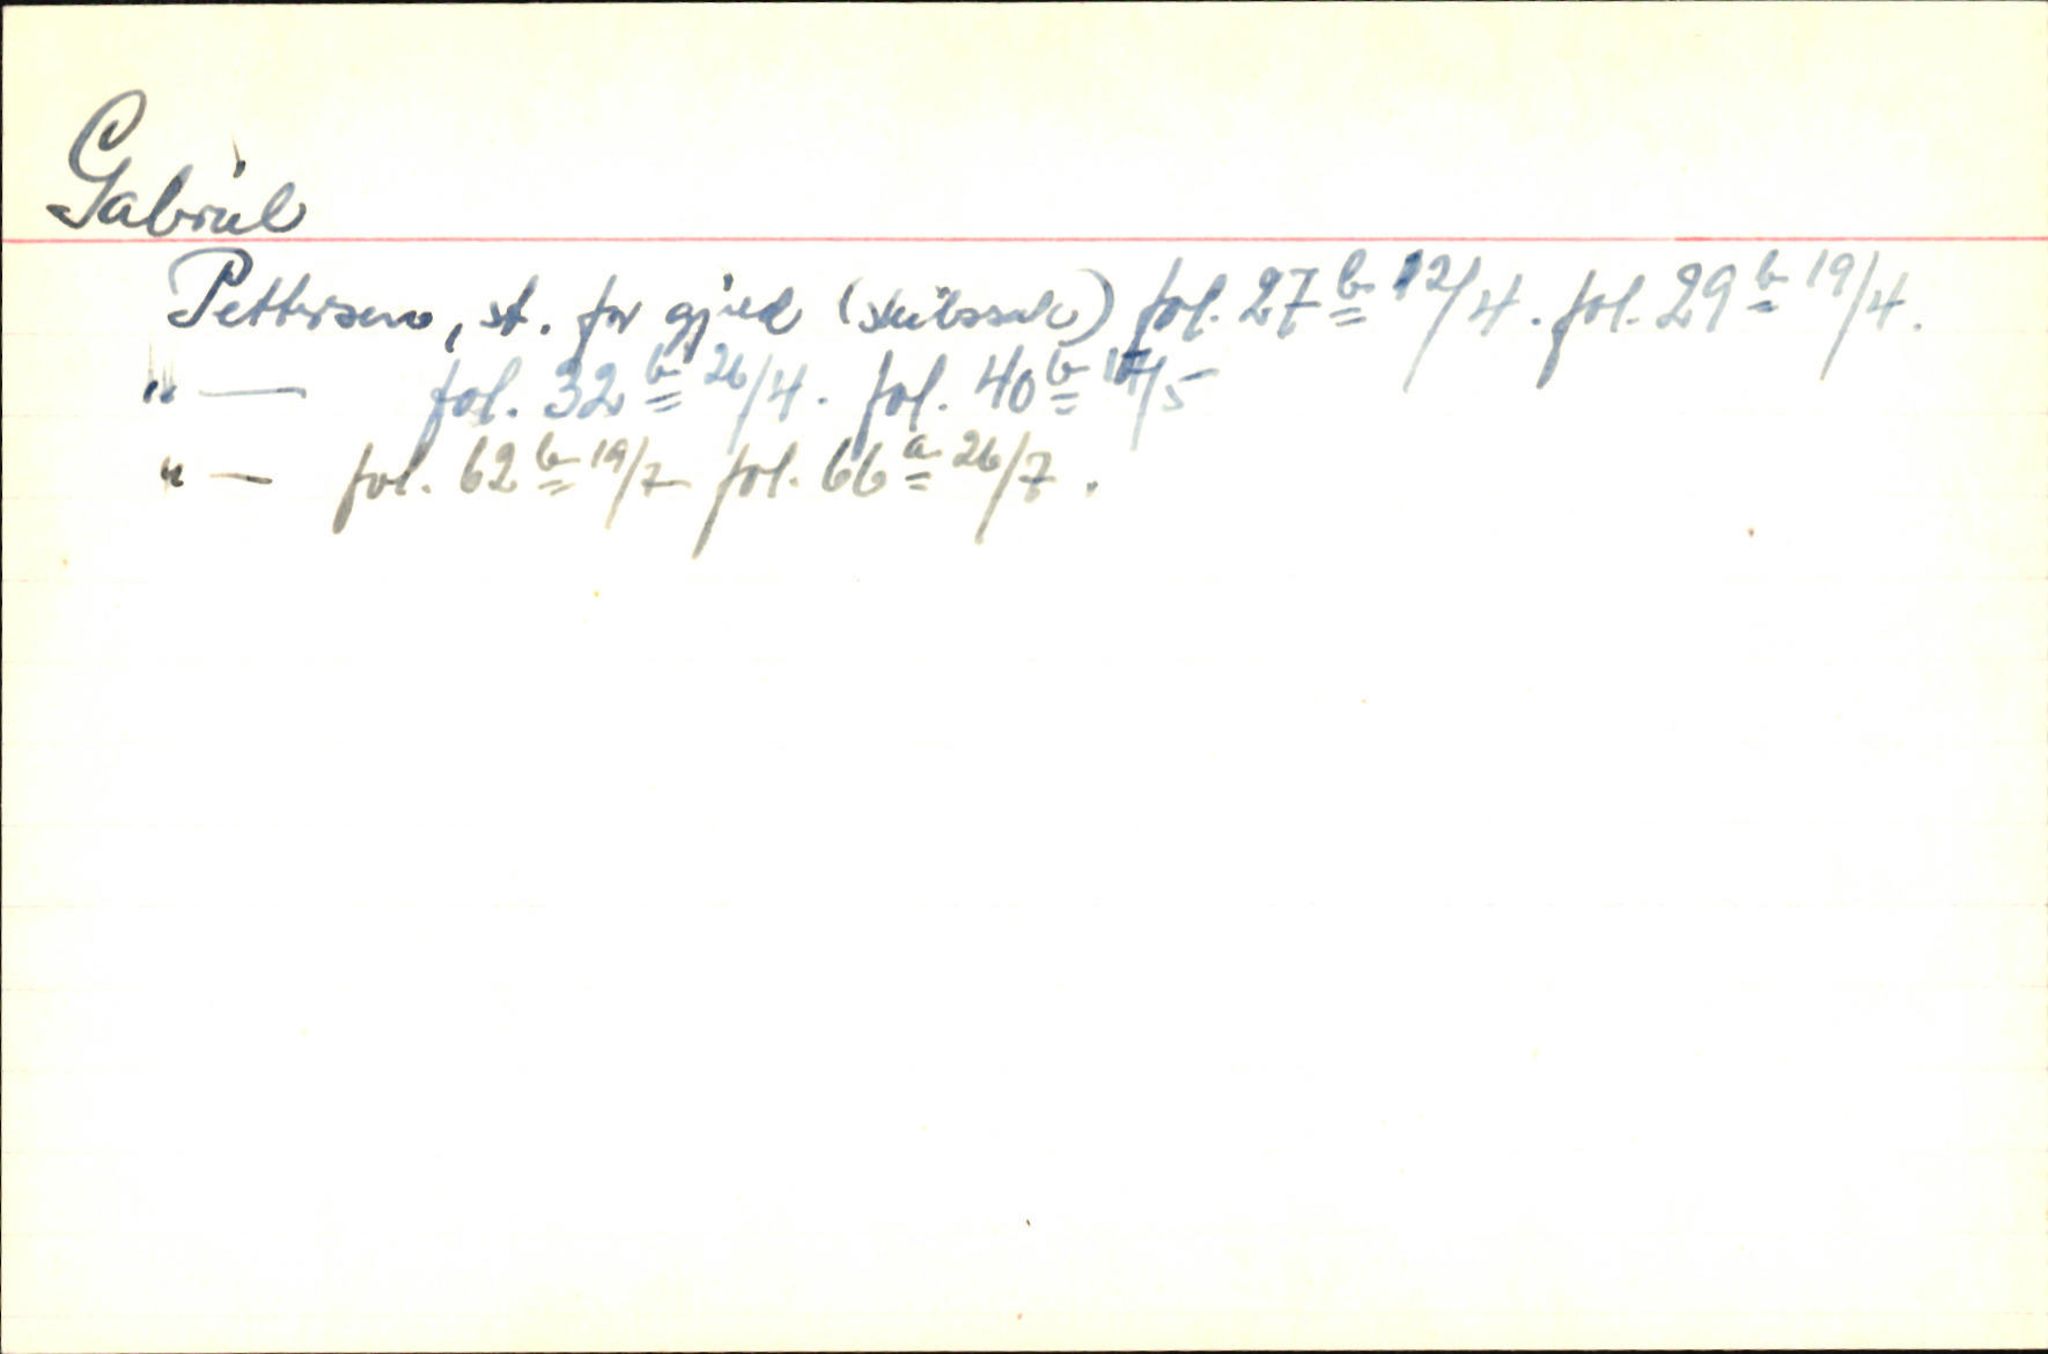 Gabriel
Pettersen, st. for gjeld (skilssak) fol. 27b 12/4. fol. 29b 19/4.
"— fol. 32b 26/4. fol. 40b 17/5
"— fol. 62b 19/7 fol. 66a 26/7.